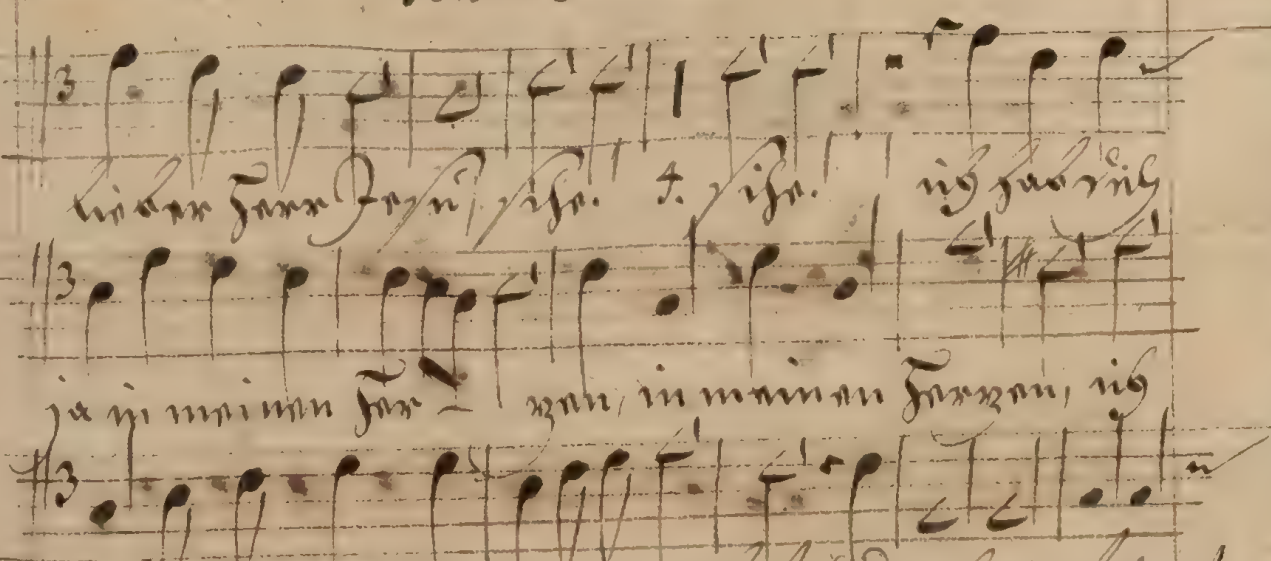 lieber Herr Jesu, siehe. 4. siehe. ich hab dich
ja in meinen Her - zen, in meinen Herzen, ich